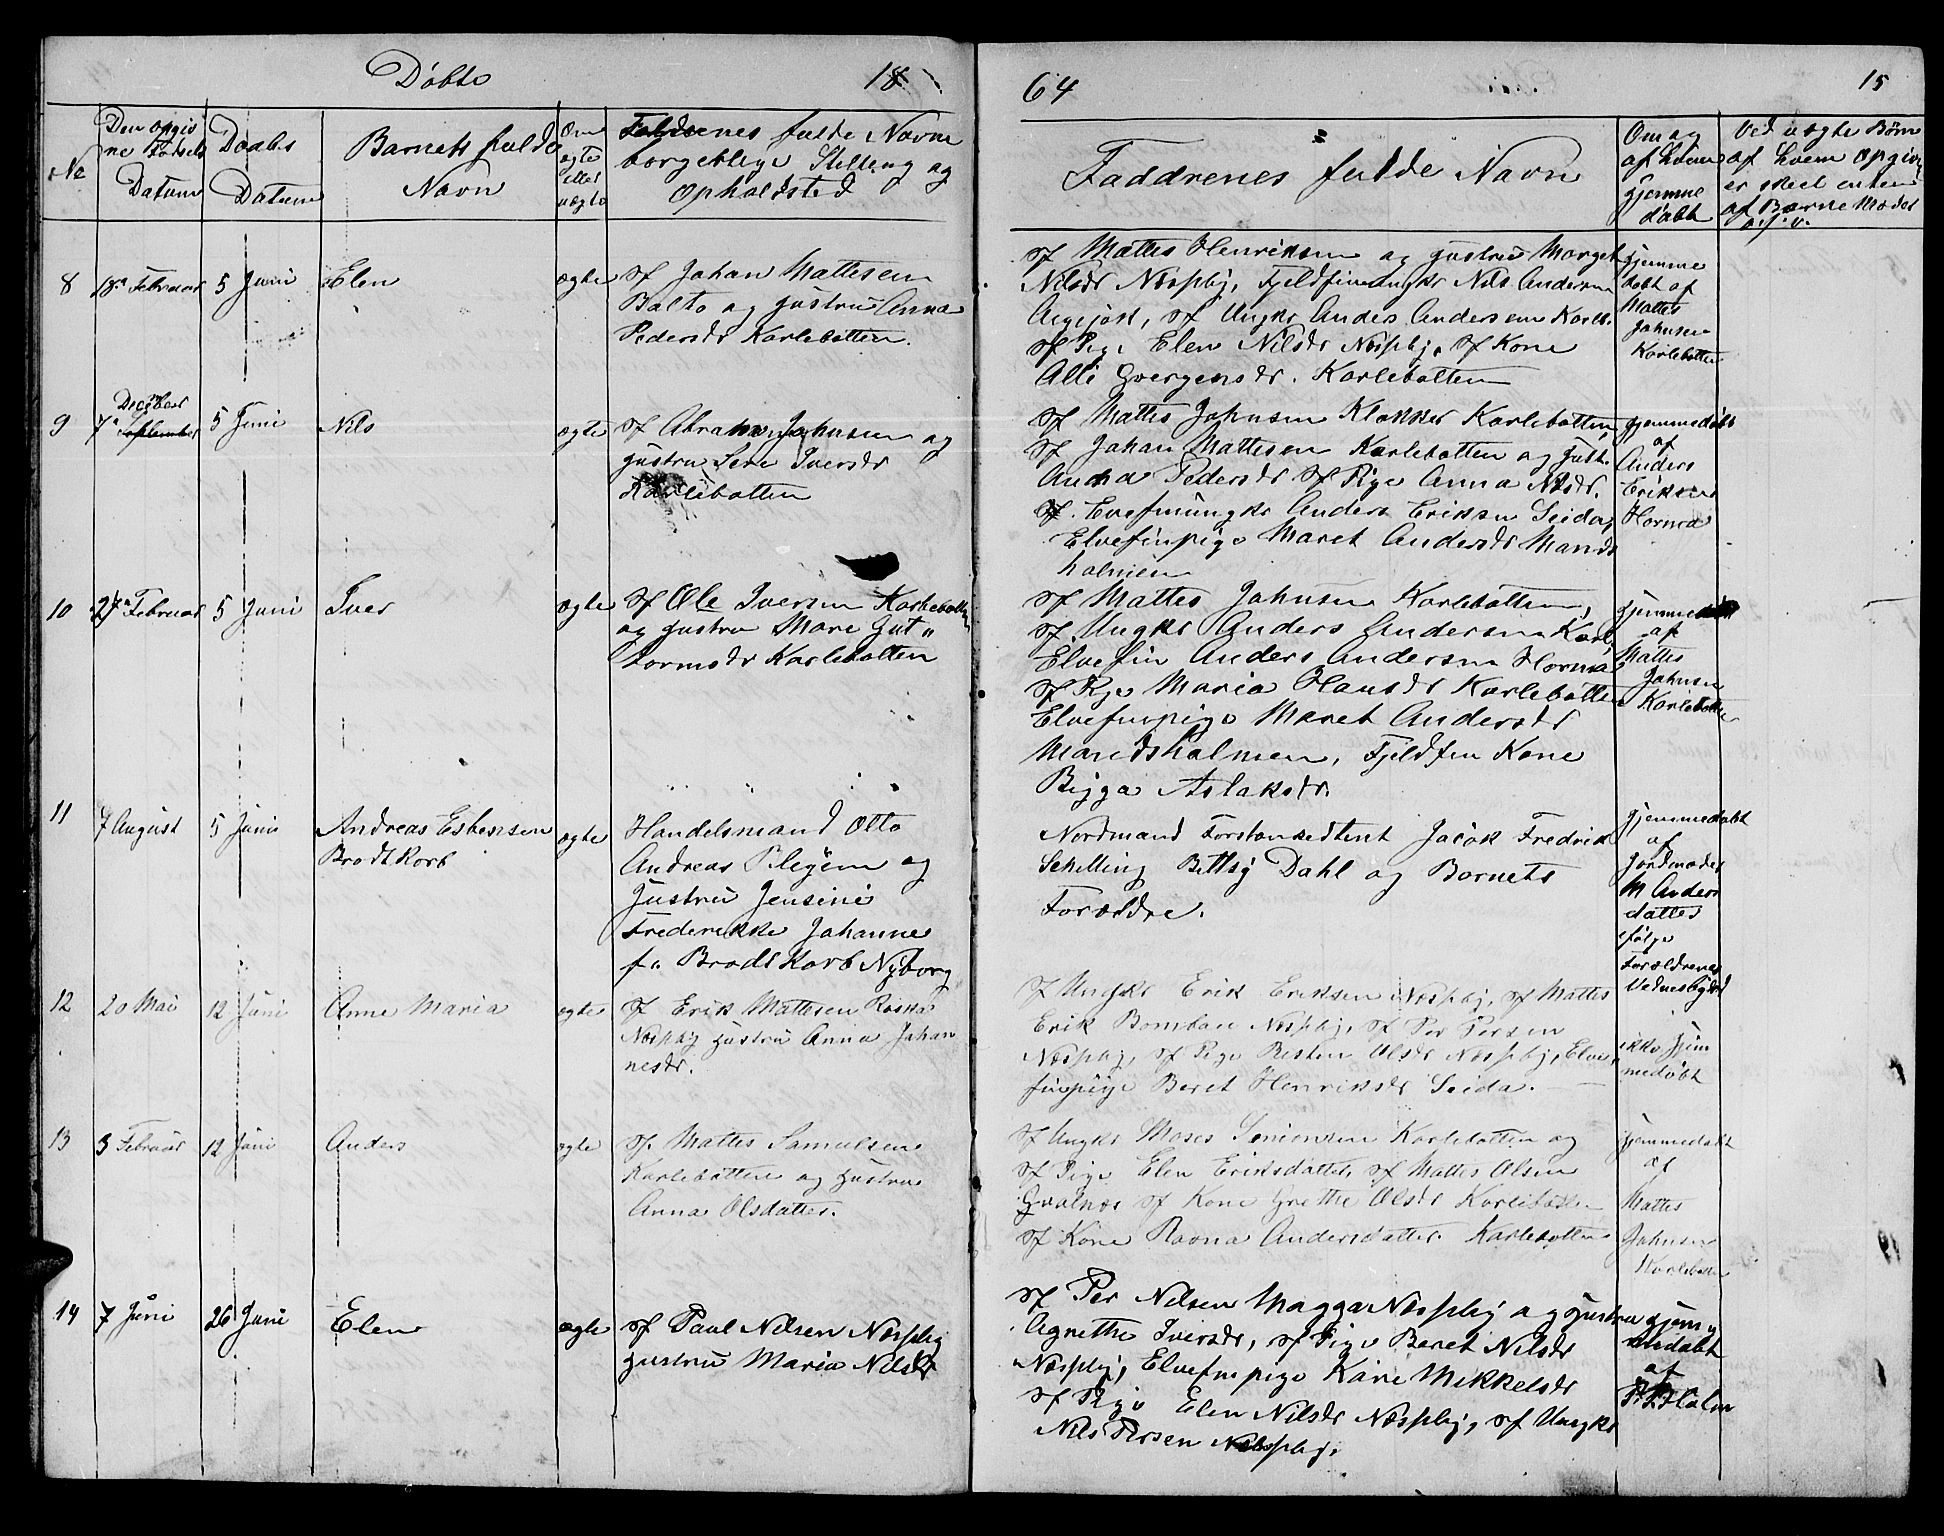 Døbte 18
64 15
No
Den opgiv
ne Fødsels
Datum
Daabs
Datum
Barnets fulde
Navn
Om
ægte
eller
uægte
Forældrenes fulde Navne
borgerlige Stilling og
Opholdsted
Faddrenes fulde Navn
Om og
af hvem
hjemme
døbt
Ved uægte Børn
af hvem Opgive
er skeet enten
af Barne Moder
o.s.v.
8 18. Februar 5 Juni Elen ægte
Sf Johan Mattesen
Balto og Hustru Anna
Pedersdr Karlebotten.
Sf Mattes Henriksen og Hustru Marget
Nilsdr Næssby, Fjeldfinungkr Nils Andersen
Sf Ungkr Anders Andersen Karlb.
Sf Pige Elen Nilsdr Næssby, Sf Kone
Karlebotten
hjemme
døbt af
Mattes
Johnsen
Karlebotten
9 7. September
December
5 Juni Nils ægte
Sf Abraham Johnsen og
Hustru Lene Iversdr
Karlebotten
Sf Mattes Johnsen Klokker Karlebotten,
Sf Johan Mattesen Karlebotten og Hust.
Anna Pedersdr Sf Pige Anna Nilsdr.
Elvefinungkr Anders Eriksen Seida,
Elvefinpige Maret Andersdr Mands
holmen
hjemmedøbt
af
Anders
Eriksen
Horma
10 27. Februar 5 Juni Iver ægte
Sf Ole Iversen Karlebotten
og Hustru Mari Gut„
tormsdr Karlebotten
Sf Mattes Johnsen Karlebotten,
Sf Ungkr Anders Andersen Karl,
Elvefin Anders Andersen Horma
Sf Pige Maria Hansdr Karlebotten
Elvefinpige Maret Andersdr
Mandsholmen, Fjeldfin Kone
Bigga Aslaksdr.
hjemmedøbt
af
Mattes
Johnsen
Karlebotten
11 7 August 5 Juni
Andreas Esbensen
Brodtkorb
ægte
Handelsmand Otto
Andreas
og
Hustru Jensine
Frederikke Johanne
f. Brodtkorb Nyborg
Nordmand Jacob Fredrik
Schelling Dahl og Barnets
Forældre.
hjemmedøbt
af
Jordmoder
M Anders
datter
ifølge
Forældrenes
Vidnesbyrd
12 20 Mai 12 Juni Anne Maria ægte
Sf Erik Mattesen
Næssby Hustru Anna Johan
nesdr.
Sf Ungkr Erik Eriksen Næssby, Sf Mattes
Erik Næssby, Sf Per Persen
Næssby, Sf Pige Risten Olsdr Næssby, Elve
finpige Beret Henriksdr Seida.
ikke hjem
medøbt
13 3 Februar 12 Juni Anders ægte
Sf. Mattes Samulsen
Karlebotten og Hustru
Anna Olsdatter.
Sf Ungkr Moses Simonsen Karlebotten og
Sf Pige Elen Eriksdatter, Sf Mattes Olsen
Sf Kone Grethe Olsdr Karlebotten
Sf Kone Ravna Andersdatter Karlebotten
hjemmedøbt
af
Mattes
Johnsen
Karlebotten
14 7 Juni 26 Juni Elen ægte
Sf Paul Nilsen Næssby
Hustru Maria Nilsdr
Sf Per Nilsen Magga Næssby og Hustru
Agnethe Iversdr, Sf Pige Beret Nilsdr
Næssby, Elvefinpige Kari Mikkelsdr
Sf Pige Elen Nilsdr Næssby, Sf Ungkr
Nils Persen Næssby.
hjem„
medøbt
af
Holm